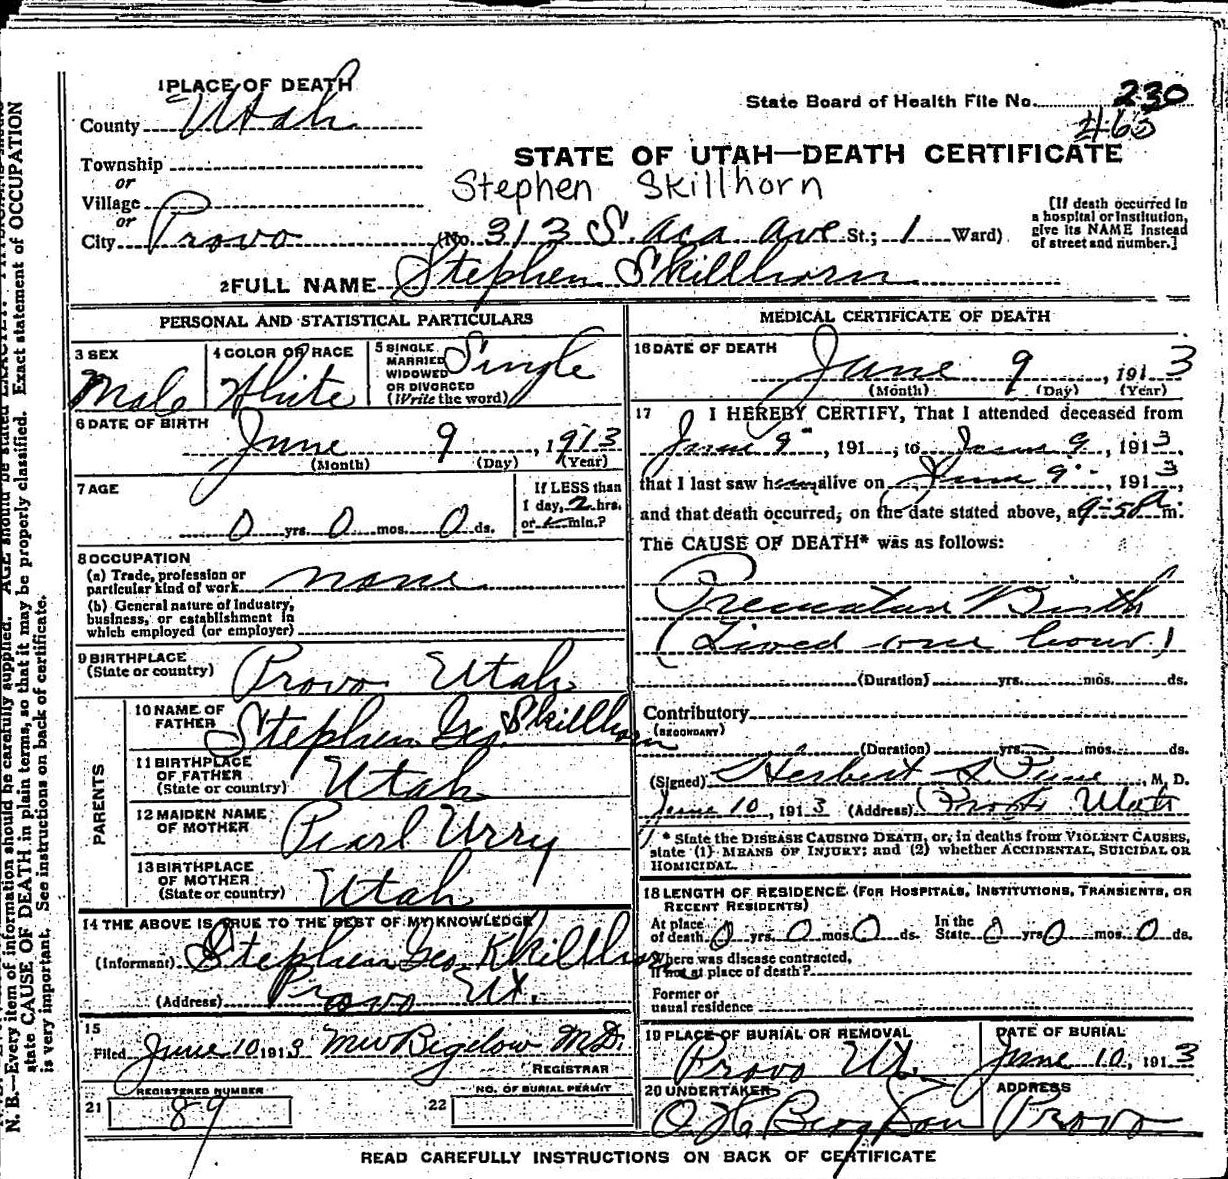 1 PLACE OF DEATH
County Utah
State Board of Health File No. 230
465
Township
or
STATE OF UTAH—DEATH CERTIFICATE
Village
Stephen Skillhorn
or
City Provo (No. 313 S. Aca Ave St.; 1 Ward)
[If death occurred in
a hospital or institution,
give its NAME instead
of street and number.]
2 FULL NAME Stephen Skillhorn
PERSONAL AND STATISTICAL PARTICULARS
3 SEX
Male
4 COLOR OR RACE
White
5 SINGLE
MARRIED
WIDOWED
OR DIVORCED
(Write the word)
Single
6 DATE OF BIRTH
June 9, 1913
(Month) (Day) (Year)
7 AGE
0 yrs. 0 mos. 0 ds.
If LESS than
1 day, 2 hrs.
or min.?
8 OCCUPATION
(a) Trade, profession or
particular kind of work none
(b) General nature of industry,
business, or establishment in
which employed (or employer)
9 BIRTHPLACE
(State or country) Provo Utah
PARENTS
10 NAME OF
FATHER Stephen Geo. Skillhorn
11 BIRTHPLACE
OF FATHER
(State or country) Utah
12 MAIDEN NAME
OF MOTHER Pearl Urry
13 BIRTHPLACE
OF MOTHER
(State or country) Utah
14 THE ABOVE IS TRUE TO THE BEST OF MY KNOWLEDGE
(Informant) Stephen Geo Skillhorn
(Address) Provo Ut.
15
Filed June 10 1913 MW Bigelow M.D.
REGISTRAR
REGISTERED NUMBER
21 89
NO. OF BURIAL PERMIT
22
MEDICAL CERTIFICATE OF DEATH
16 DATE OF DEATH
June 9, 1913
(Month) (Day) (Year)
17 I HEREBY CERTIFY, That I attended deceased from
June 9, 191 , to June 9, 1913,
that I last saw h alive on June 9, 1913,
and that death occurred, on the date stated above, at m.
The CAUSE OF DEATH* was as follows:
Premature Birth
(Lived one hour)
(Duration) yrs. mos. ds.
Contributory
(SECONDARY)
(Duration) yrs. mos. ds.
(Signed) Herbert M. D.
June 10, 1913 (Address) Provo Utah
* State the DISEASE CAUSING DEATH, or, in deaths from VIOLENT CAUSES,
state (1) MEANS OF INJURY; and (2) whether ACCIDENTAL, SUICIDAL OR
HOMICIDAL.
18 LENGTH OF RESIDENCE (FOR HOSPITALS, INSTITUTIONS, TRANSIENTS, OR
RECENT RESIDENTS)
At place
of death 0 yrs. 0 mos. 0 ds.
In the
State 0 yrs 0 mos. 0 ds.
Where was disease contracted,
if not at place of death?
Former or
usual residence
19 PLACE OF BURIAL OR REMOVAL
Provo Ut.
DATE OF BURIAL
June 10, 1913
20 UNDERTAKER
ADDRESS
Provo
READ CAREFULLY INSTRUCTIONS ON BACK OF CERTIFICATE
N. B.—Every item of information should be carefully supplied. AGE should be stated EXACTLY.
state CAUSE OF DEATH in plain terms, so that it may be properly classified. Exact statement of OCCUPATION
is very important. See instructions on back of certificate.